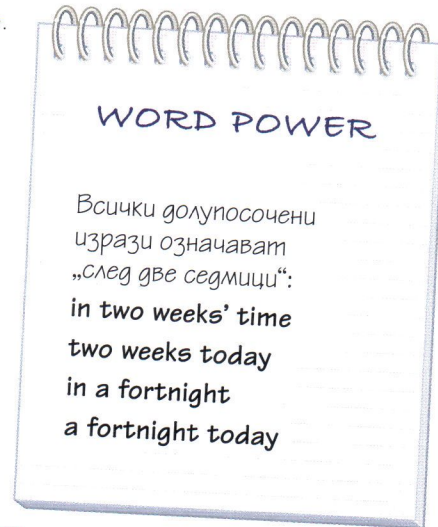 WORD POWER
Всички долупосочени
изрази означават
„след две седмици“:
in two weeks’ time
two weeks today
in a fortnight
a fortnight today